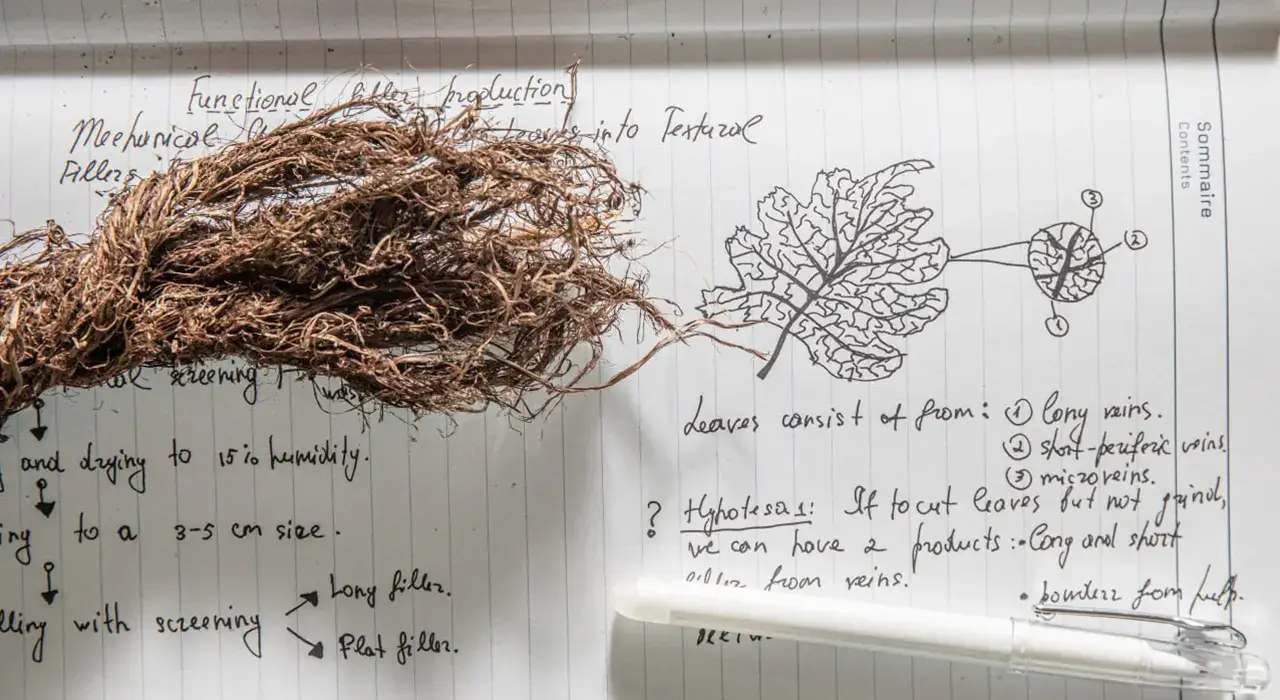 Functional filler production
Mechanical leaves into Textural
Fillers
screening
and drying to 15% humidity.
ing to a 3-5 cm size.
lling with screening
Long filler.
Flat filler.
Sommaire
Contents
3
2
1
Leaves consist of from: 1 long veins.
2 short-periferic veins.
3 microveins.
? Hypotesa 1: If to cut leaves but not grind,
we can have 2 products: • Long and short
filler from veins.
• powder from pulp.